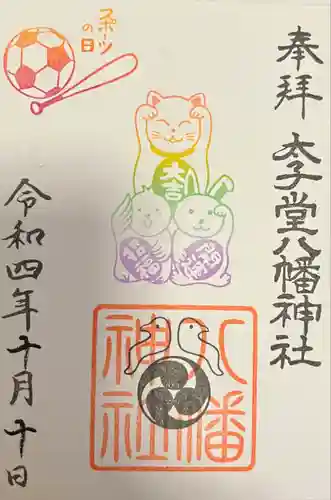 奉拝
太子堂八幡神社
スポーツ
の日
大吉
八幡
神社
令和四年十月十日